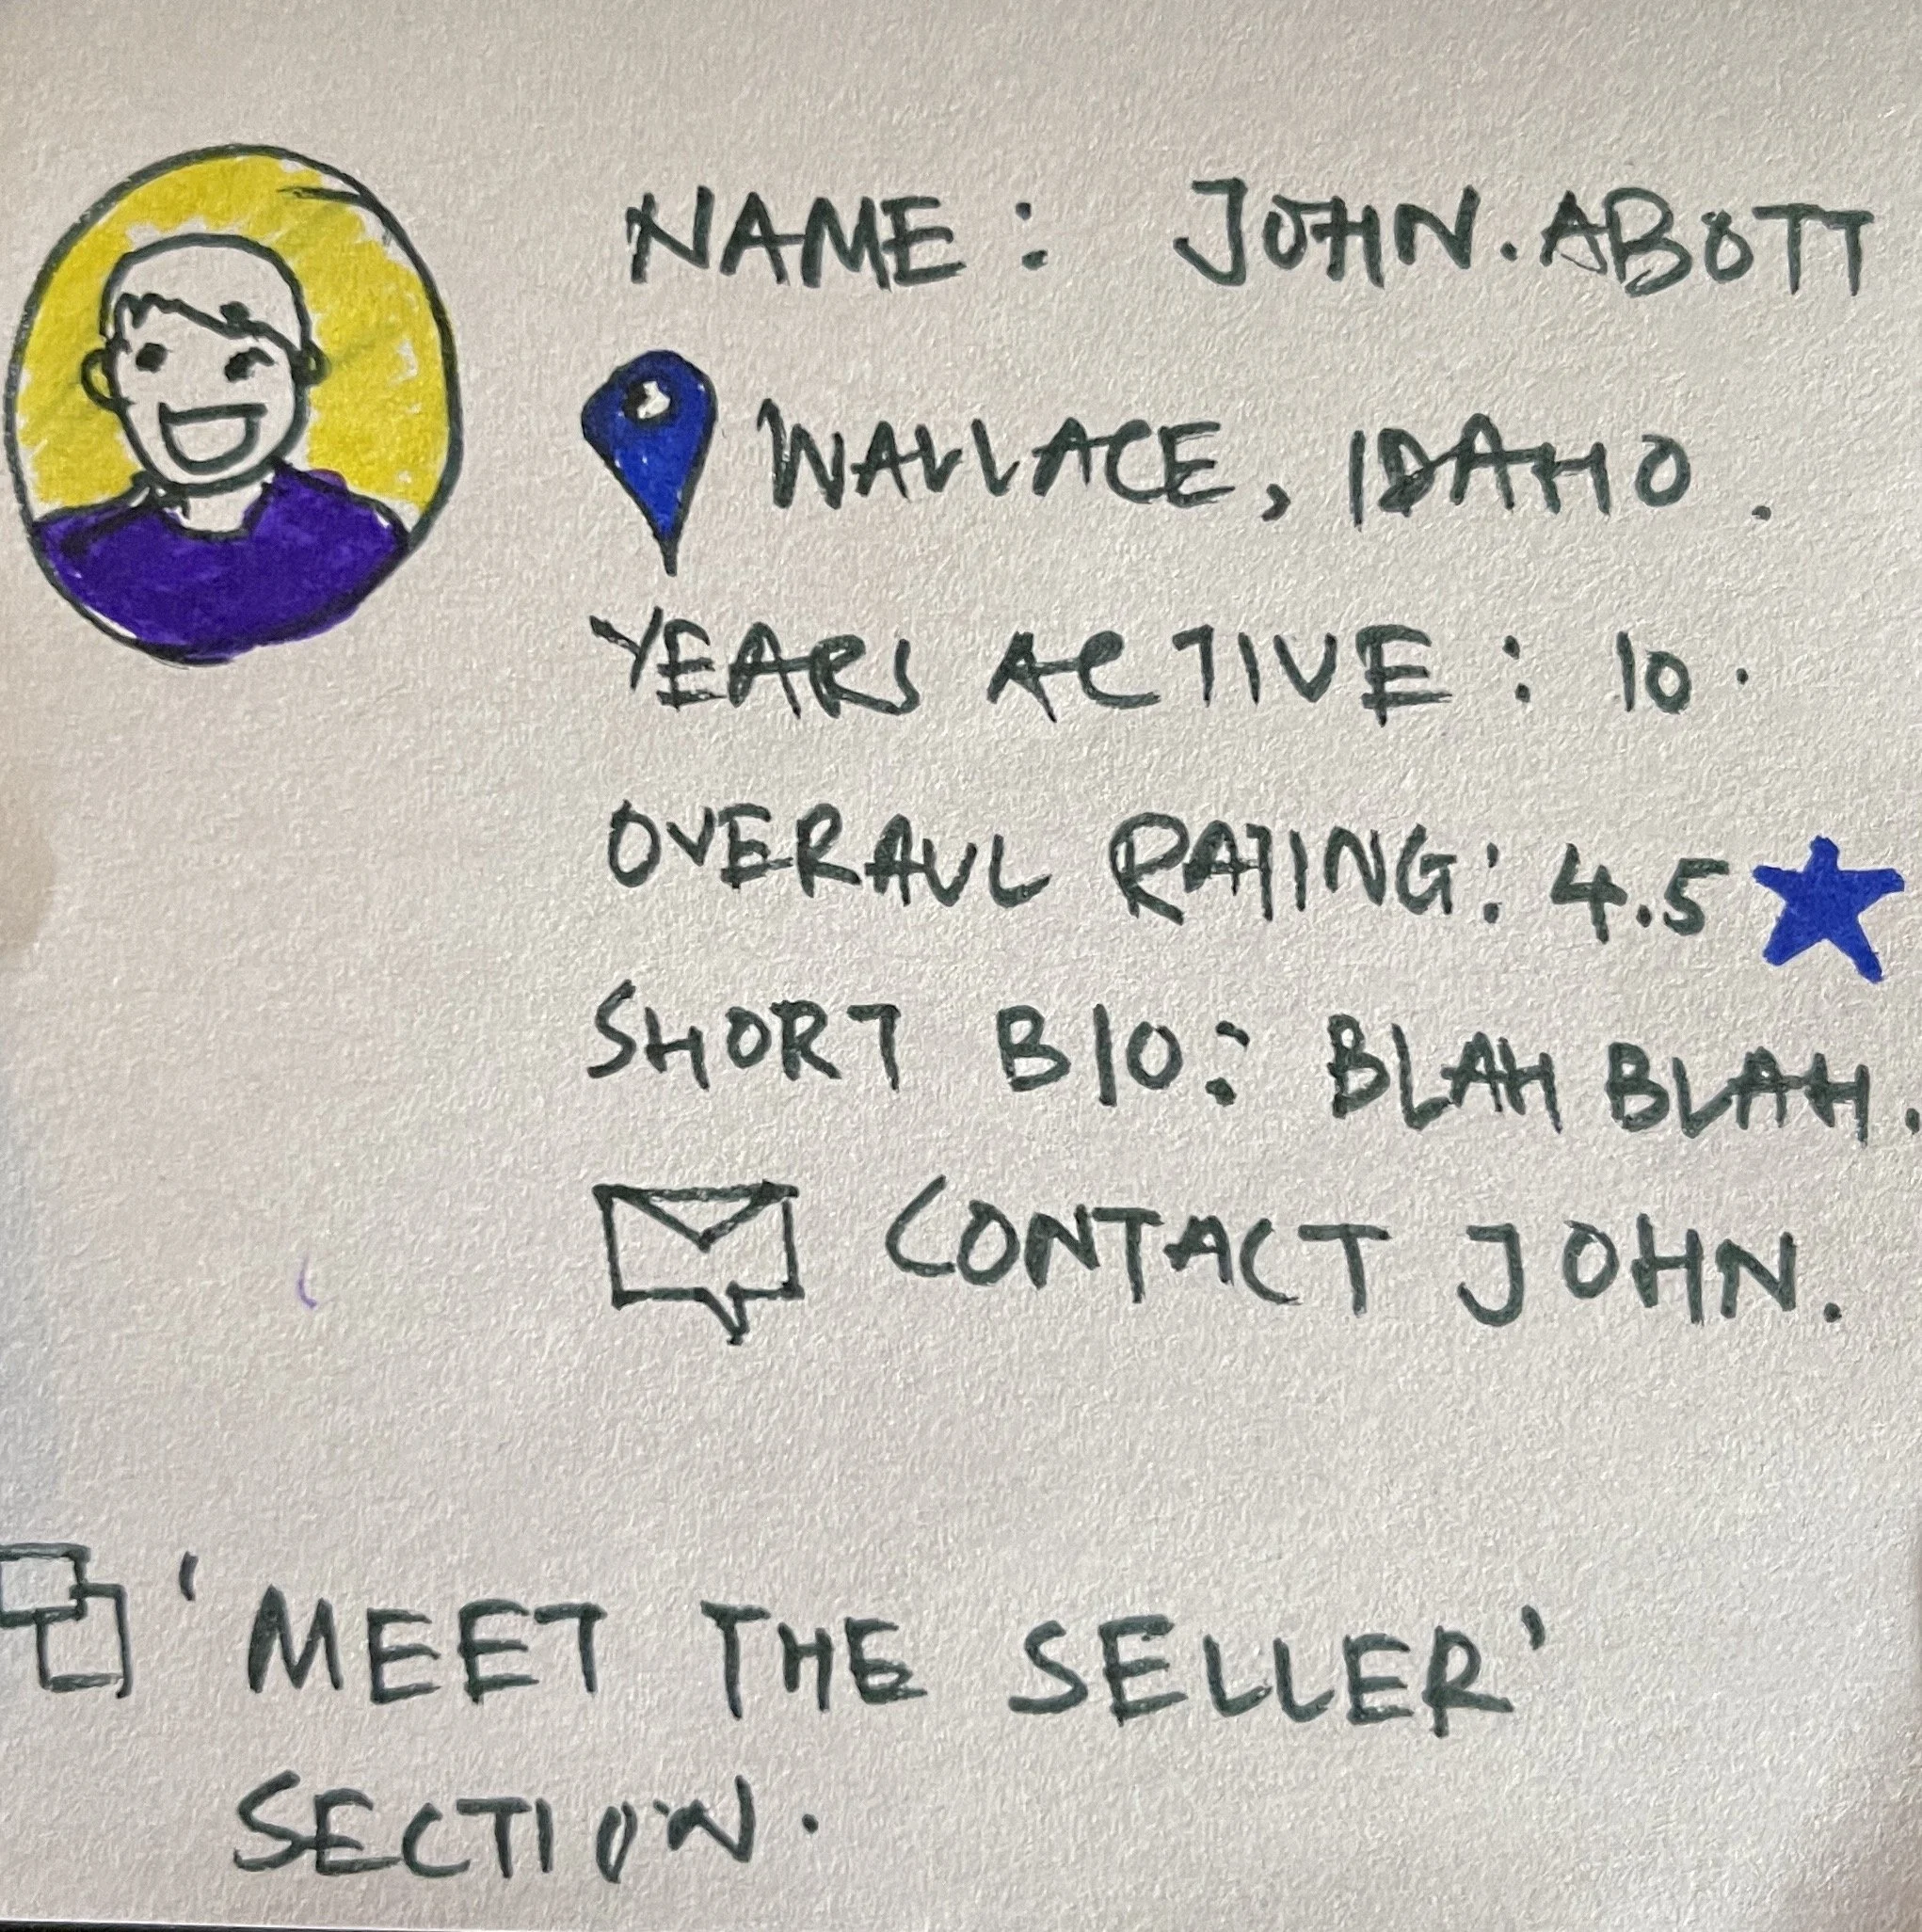 NAME: JOHN. ABOTT
WALLACE, IDAHO.
YEARS ACTIVE: 10.
OVERALL RATING: 4.5
SHORT BIO: BLAH BLAH.
CONTACT JOHN.
'MEET THE SELLER'
SECTION.